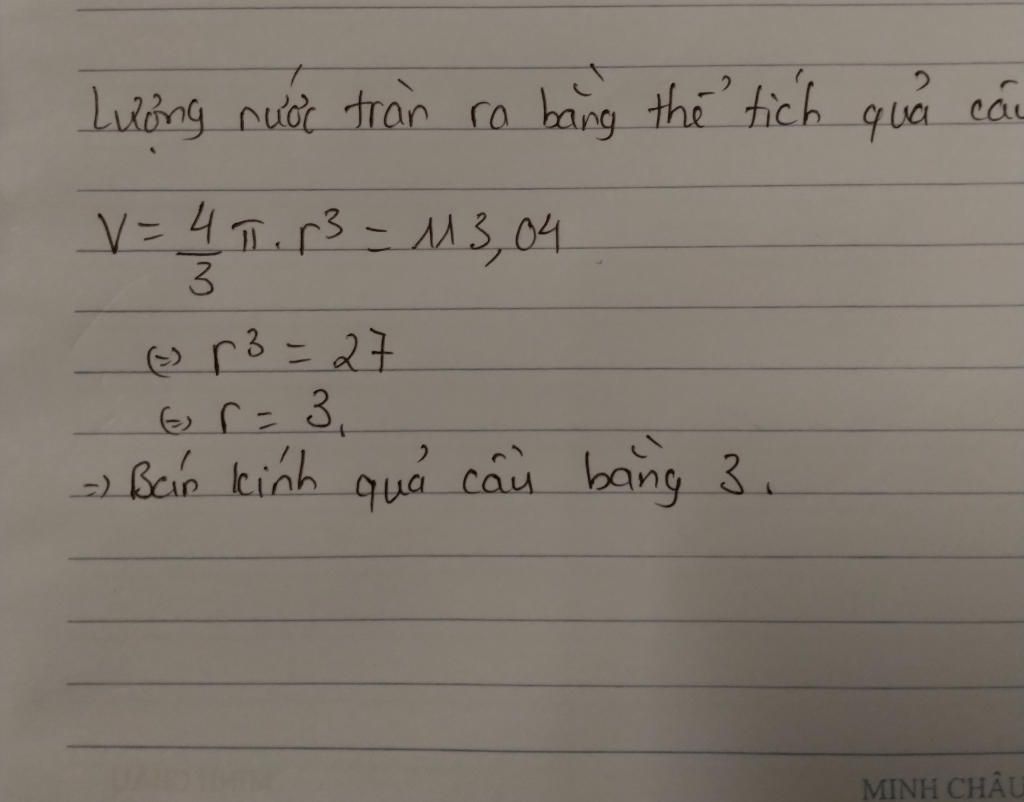 Lượng nước tràn ra bằng thể tích quả cầu
V = 4/3 π . r³ = 113,04
(=) r³ = 27
(=) r = 3,
=) Bán kính quả cầu bằng 3.
MINH CHÂU